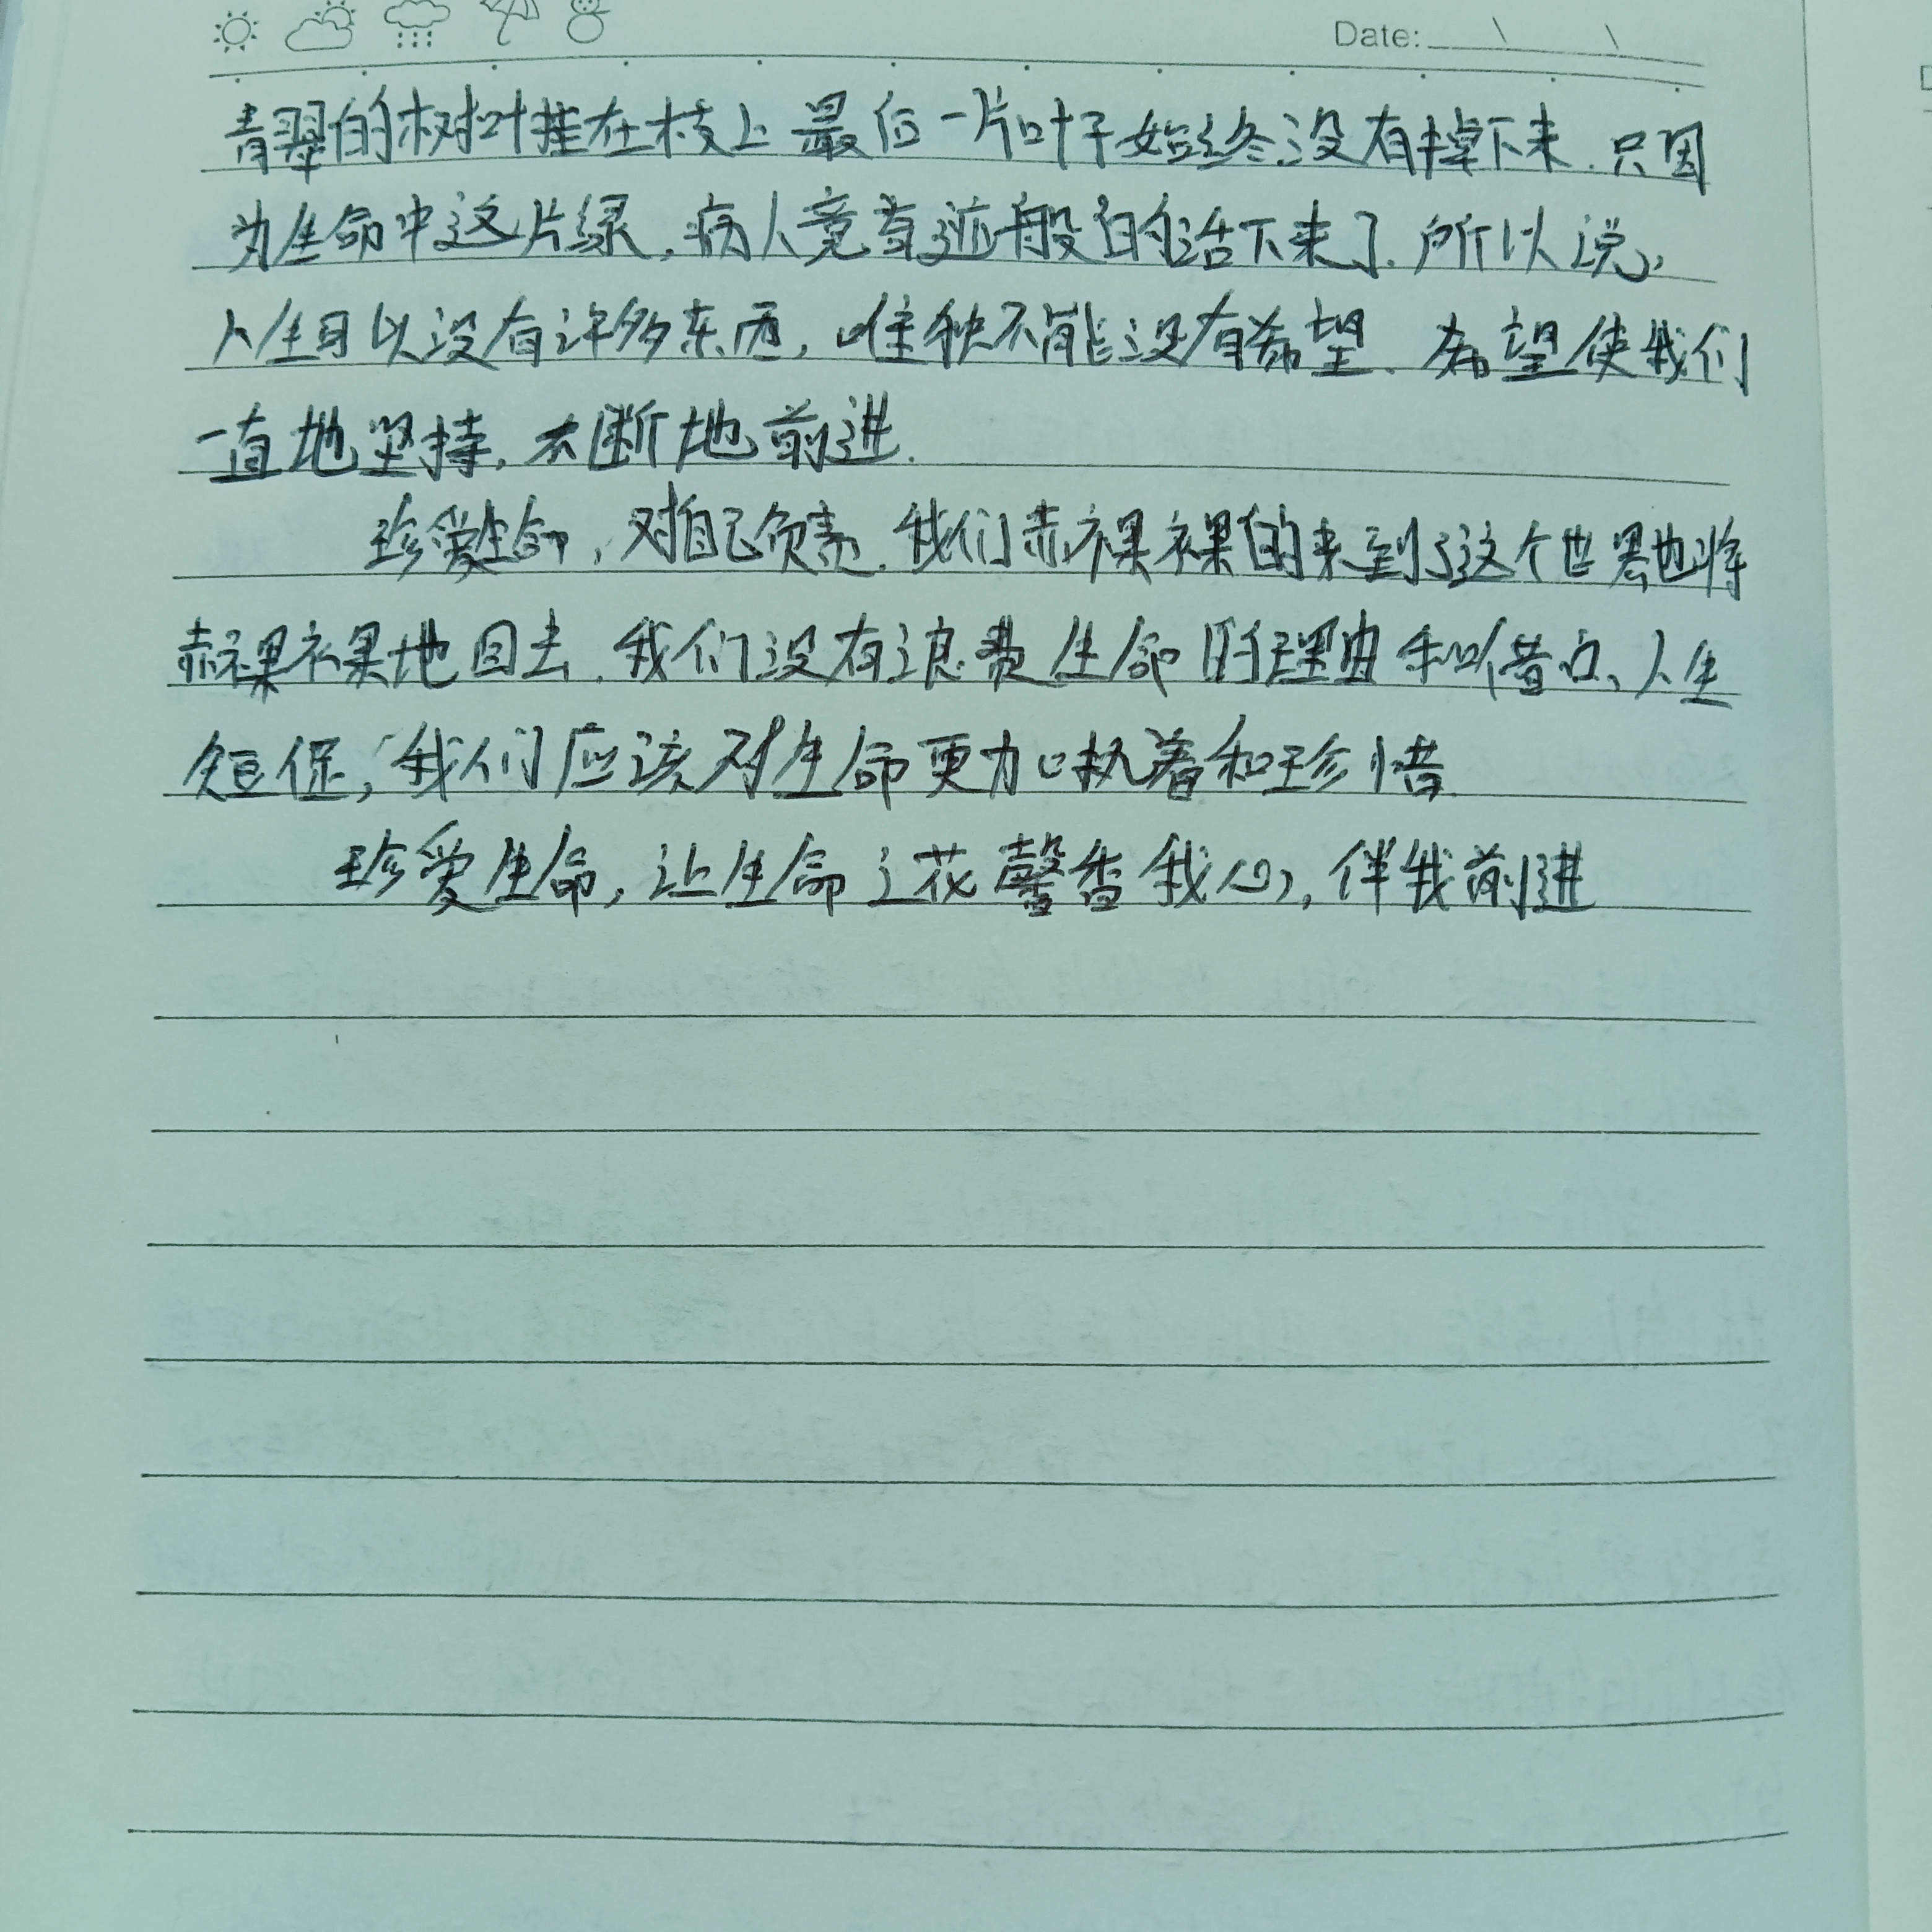 Date:
青翠的树叶挂在枝上 最后一片叶子始终没有掉下来.只因
为生命中这片绿,病人竟奇迹般的活下来了.所以说,
人生可以没有许多东西,唯独不能没有希望.希望使我们
一直地坚持,不断地前进.
珍爱生命,对自己负责.我们赤裸裸的来到了这个世界也将
赤裸裸地回去.我们没有浪费生命的理由和借口、人生
短促,我们应该对生命更加执着和珍惜.
珍爱生命,让生命之花馨香我心,伴我前进